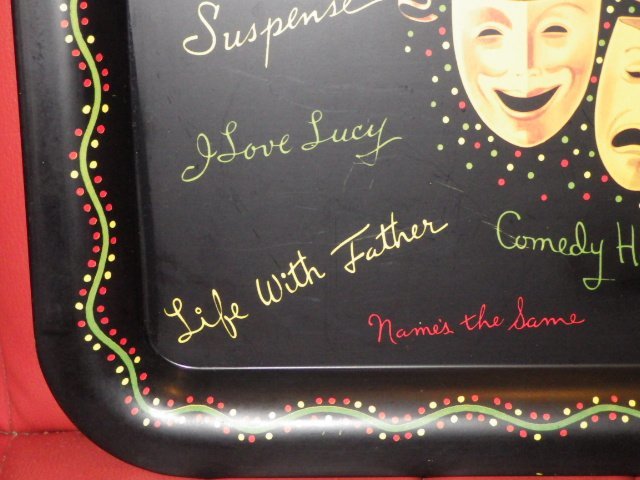 Suspense
I Love Lucy
Life With Father
Comedy H
Name's the Same